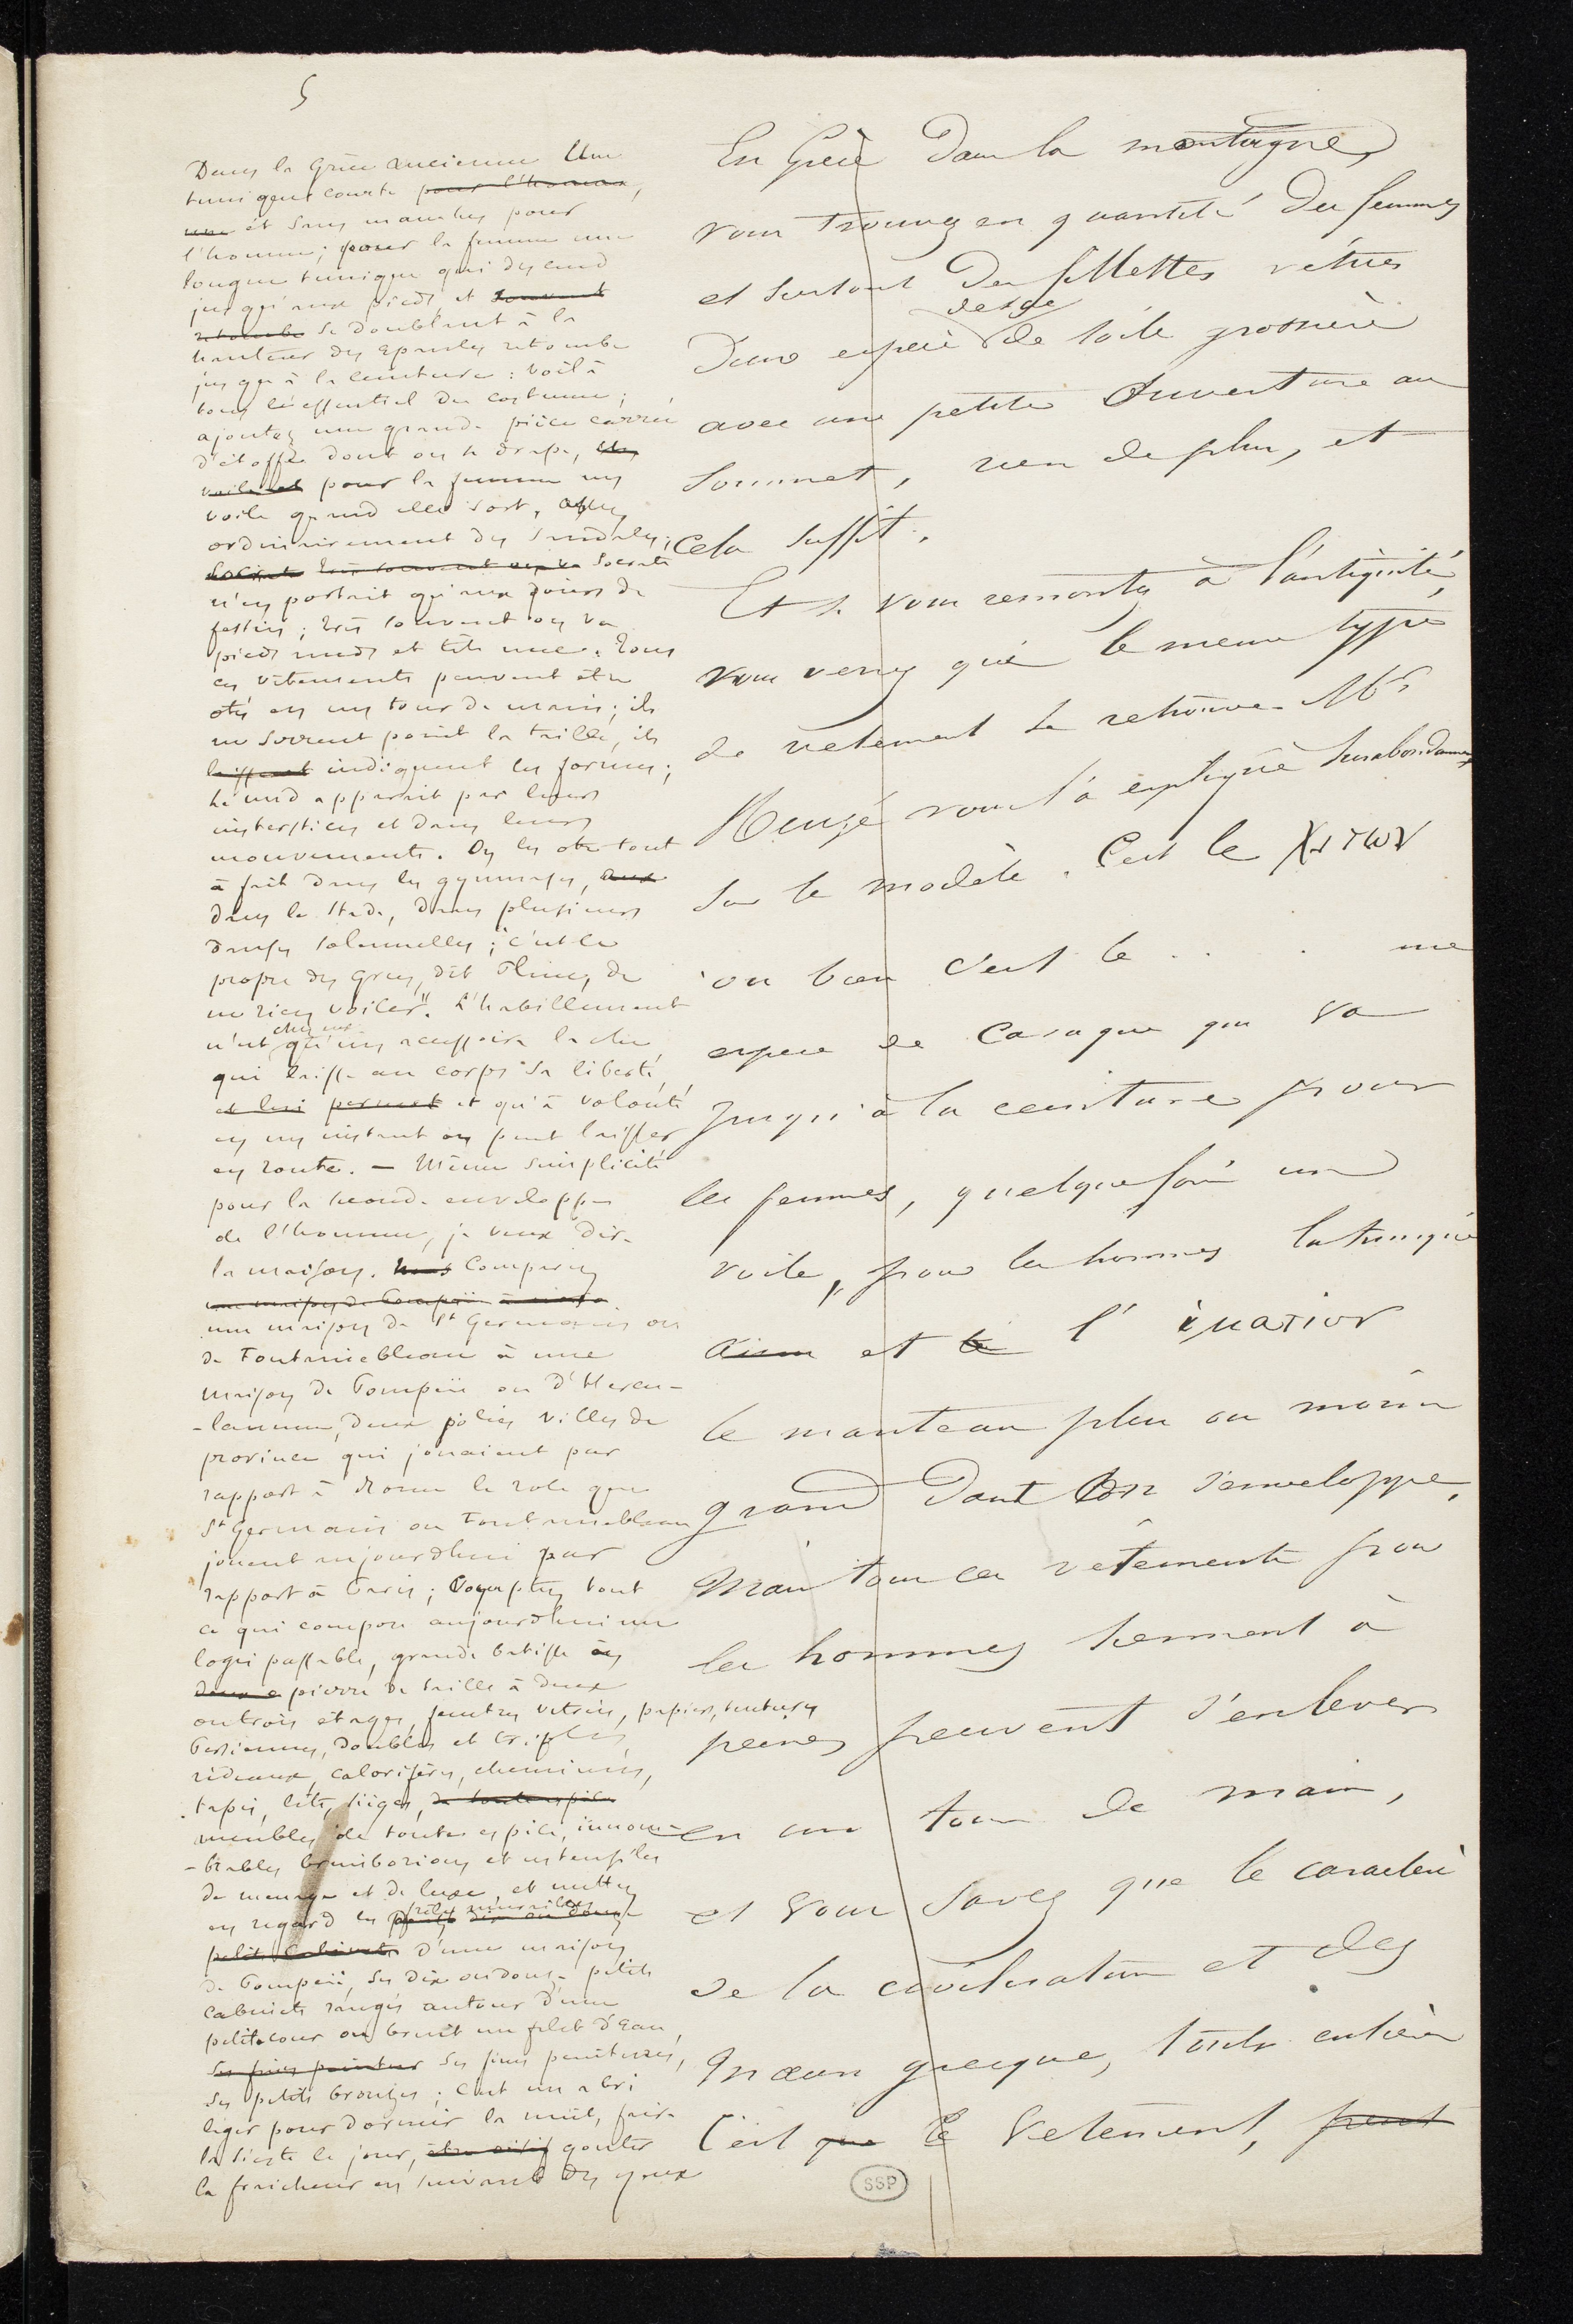 5
Dans la Grèce ancienne Une
tunique courte pour l'homme,
une et sans manches pour
l'homme; pour la femme une
longue tunique qui descend
jusqu'aux pieds et souvent
retombe se doublant à la
hauteur des épaules retombe
jusqu'à la ceinture : voilà
tout l'essentiel du costume;
ajoutez une grande pièce carrée
d'étoffe dont on se drape,
voile et pour la femme un
voile quand elle sort, assez
ordinairement des sandales;
Socrate très souvent Socrate
n'en portait qu'aux jours de
festin; très souvent on va
pieds nuds et tête nue. Tous
ces vêtements peuvent être
otés en un tour de main; ils
ne serrent point la taille, ils
laissent indiquent les formes;
le nud apparait par leurs
interstices et dans leurs
mouvements. On les ote tout
à fait dans les gymnases, aux
dans le stade, dans plusieurs
danses solennelles; "c'est le
propre des Grecs, dit Pline, de
ne rien voiler". L'habillement
n'est chez eux qu'un accessoire lache,
qui laisse au corps sa liberté,
et lui permet et qu'à volonté
en un instant on peut laisser
en route. — Même simplicité
pour la seconde enveloppe
de l'homme, je veux dire
la maison. Comparez
une maison de Pompeii
une maison de St Germain ou
de Fontainebleau à une
maison de Pompeii ou d'Hercu-
-lanum, deux jolies villes de
province qui jouaient par
rapport à Rome le role que
St Germain ou Fontainebleau
jouent aujourdhui par
rapport à Paris; Comptez tout
ce qui compose aujourdhui un
logis passable, grande batisse en
pierre de taille à deux
ou trois étages, fenetres vitrées, papiers, tentures
Persiennes, doubles et triples
rideaux, calorifères, cheminées,
tapis, lits, sièges, de toute espèce
meubles de toute espèce, innom-
-brables brimborions et ustensiles
de menage et de luxe, et mettez
en regard les frêles murailles petits dix ou douze
petits cabinets d'une maison
de Pompeii, ses dix ou douze petits
cabinets rangés autour d'une
petite cour où bruit un filet d'eau,
ses fines peintures ses fines peintures,
ses petits bronzes; C'est un abri
léger pour dormir la nuit, faire
la sieste le jour, gouter
la fraicheur en suivant des yeux
En Grèce Dans la montagne
vous trouvez en quantité des femmes
et surtout Des fillettes vêtues
D'une espèce de sac de toile grossière
avec une petite Ouverture au
Sommet, rien de plus, et
Cela suffit.
Et si vous remontez à l'antiquité,
vous verrez que le meme type
de vetement se retrouve. Mr
Heuzé vous l'a expliqué surabondamment
Sur le modèle. C'est le χιτων
ou bien c'est le . . . une
espece de Casaque qui va
Jusqu'à la ceinture pour
les femmes, quelquefois un
voile, pour les hommes la tunique
et le l' ιματιον
le manteau plus ou moins
grand Dont l'on s'enveloppe.
Mais tous ces vêtements pour
les hommes tiennent à
peine, peuvent s'enlever
en un tour de main,
et vous savez que le caractère
de la civilisation et des
Mœurs grecque, toute entière
C'est que le Vetement, peut
SSP